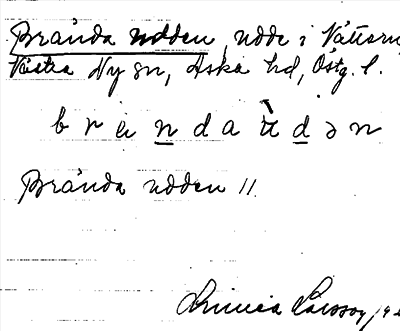 Brända udden, udde i Vättern,
Västra Ny sn, Aska hd, Östg. l.
b r ä n d a ù d ə n
Brända udden 11.
Linnéa Larsson, 19